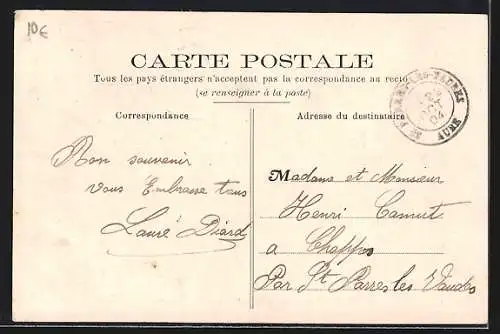 10€
CARTE POSTALE
Tous les pays étrangers n'acceptent pas la correspondance au recto
(se renseigner à la poste)
Correspondance
Adresse du destinataire
AUBE
04
Bon souvenir
vous Embrasse tous
Lauré Diard
Madame et Monsieur
Henri Camut
a Chappes
Par St Parres les Vaudes